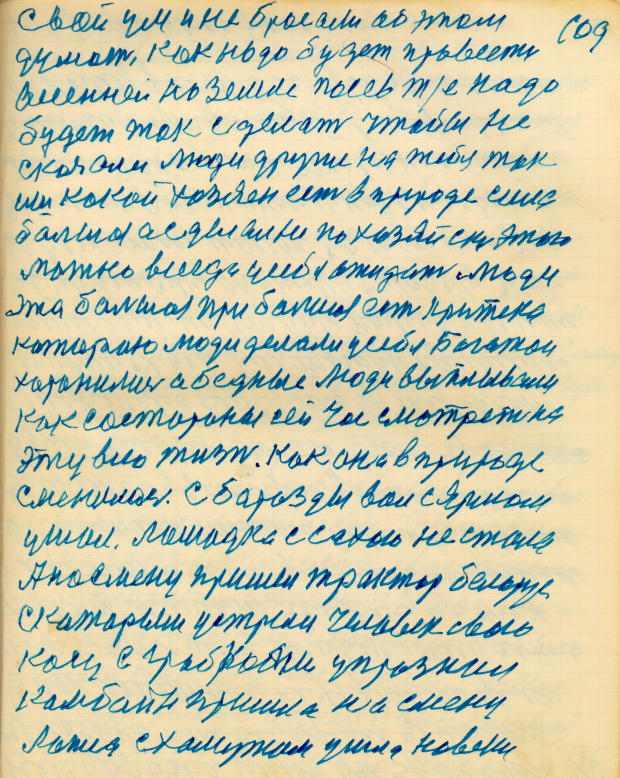 свой ум и не бросали об этом 109
думат, как надо будет провести
весенней по земле посев тже надо
будет так сделат чтобы не
сказали люди другие на тебя так
или какой хозяен ест в природе сила
балшоя а сделали не по хозяйски этого
можно всегда у себя ожидат люди
эта балшоя при балшоя ест притека
катораю люди делали у себя Багатои
харанилис а бедные люди выплывали
как состораны сей час смотрети на
эту всю жизн. Как она в природе
сменилас. С баразды вол с ярмом
ушол. Лошадка с сахою не стала
А на смену пришел трактор беларус
с каторым устрели человек свою
косу с граблями упразнил
камбайн пришла на смену
лапата с хамутом ушла навеки